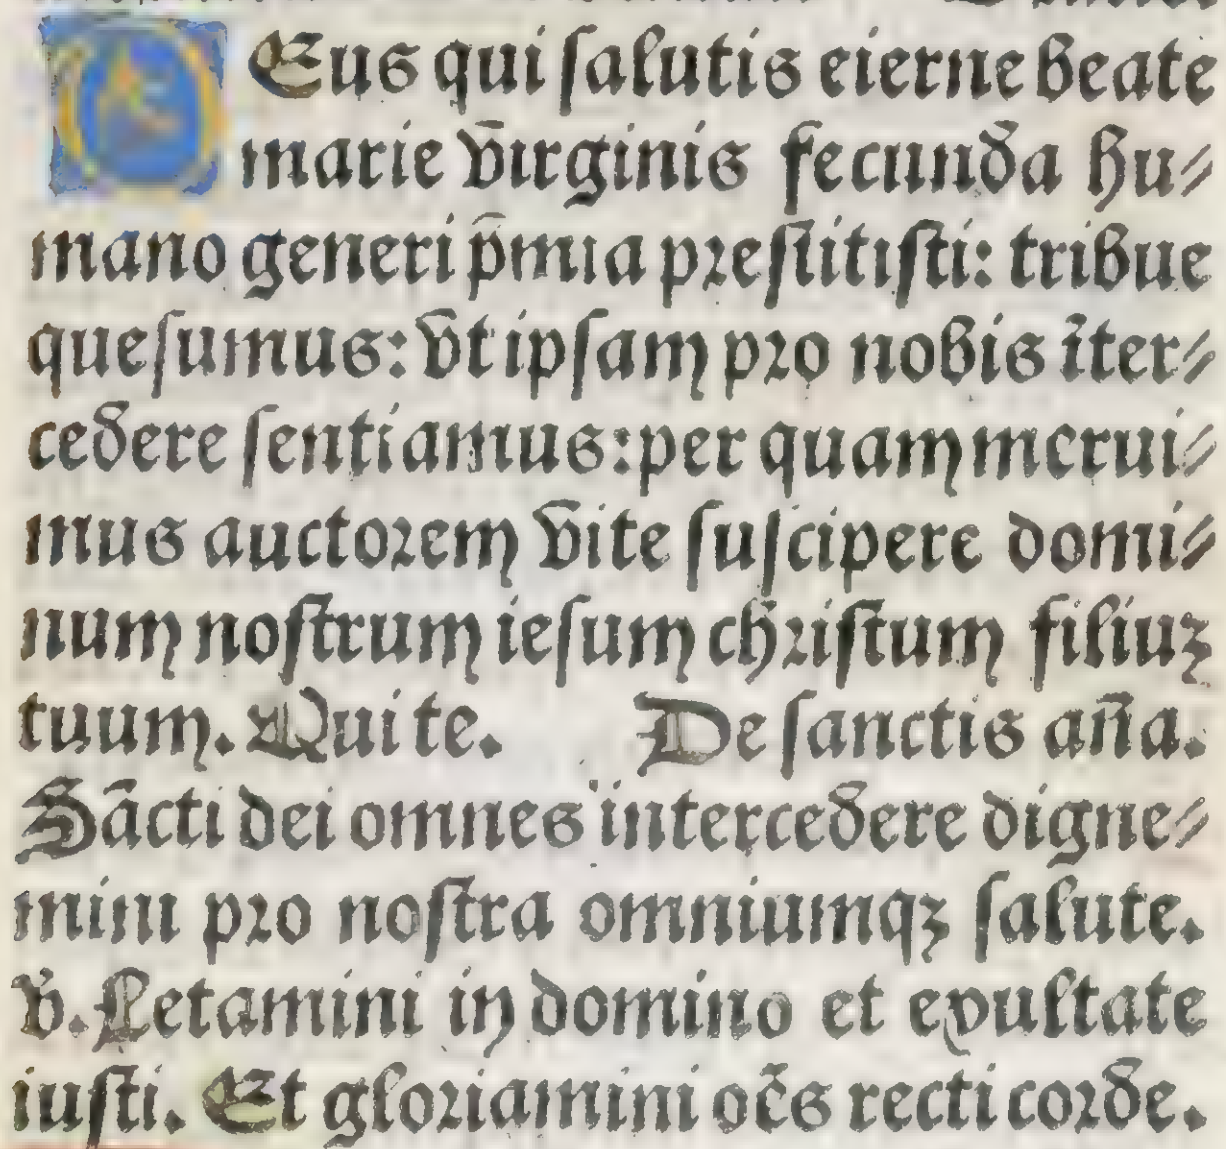 DEus qui salutis eterne beate
marie virginis fecunda hu⸗
mano generi p̄mia prestitisti: tribue
quesumus: vt ipsam pro nobis īter⸗
cedere sentiamus: per quam merui⸗
mus auctorem vite suscipere domi⸗
num nostrum iesum christum filiuꝫ
tuum. Qui te. De sanctis an̄a.
Sācti dei omnes intercedere digne⸗
mini pro nostra omniumqꝫ salute.
v̇. Letamini in domino et exultate
iusti. Et gloriamini oēs recti corde.